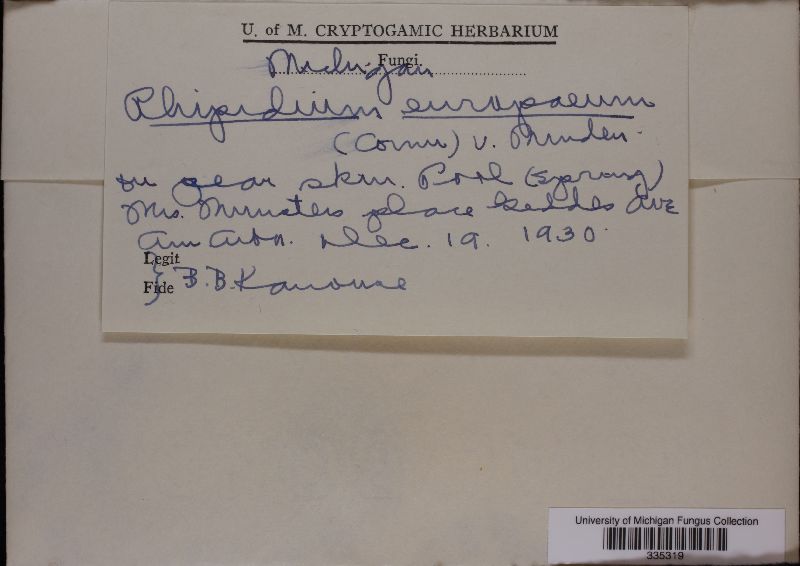 U. of M. CRYPTOGAMIC HERBARIUM
Fungi
Michigan
Rhipidium europaeum
(Cornu) v. Minden
on pear skin. Pool (spring)
Mrs. Minster's place Geddes Ave
Ann Arbor. Dec. 19. 1930.
Legit
Fide
B. B. Kanouse
University of Michigan Fungus Collection
335319